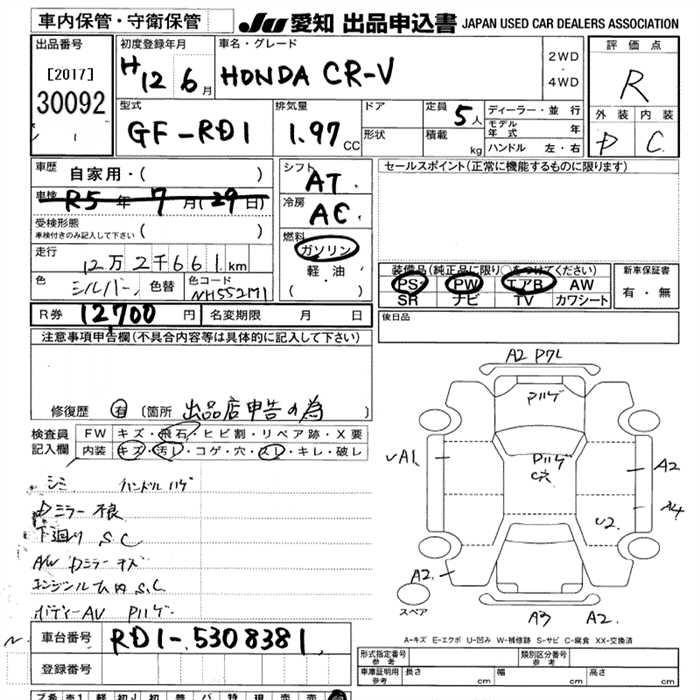 車内保管・守衛保管
JU 愛知 出品申込書 JAPAN USED CAR DEALERS ASSOCIATION
出品番号
[2017]
30092
初度登録年月
H12 6月
車名・グレード
HONDA CR-V
2WD
・
4WD
評価点
R
外装 内装
D C
型式
GF-RD1
排気量
1.97 CC
ドア
形状
定員 5人
積載 kg
ディーラー・並行
モデル年式 年
ハンドル 左・右
車歴 自家用・( )
車検 R5年 7月(29日)
受検形態
車検付きのみ記入して下さい ( )
走行 12万2千661km
色 シルバー 色替 色コード NH552M1
シフト AT
冷房 AC
燃料
ガソリン
軽・油
( ・ )
セールスポイント(正常に機能するものに限ります)
装備品(純正品に限り○をつけてください)
PS PW エアB AW
SR ナビ TV カワシート
新車保証書
有・無
R券 12,700円 名変期限 月 日
後日品
注意事項申告欄(不具合内容等は具体的に記入して下さい)
修復歴 有 [箇所 出品店申告の為 ]
検査員記入欄
FW キズ・飛石・ヒビ割・リペア跡・X要
内装 キズ・汚レ・コゲ・穴・スレ・キレ・破レ
シミ ハンドルハゲ
Dミラー不良
下廻り S.C
AW Dミラーキズ
エンジンルーム内 S.C
ボディーAV Pハゲ
A2 Pワレ
Pハゲ
Pハゲ
C穴
A1
A2
A4
U2
A2
スペア
A3 A2
A-キズ E-エクボ U-凹み W-補修跡 S-サビ C-腐食 XX-交換済
車台番号 RD1-5308381
登録番号
形式指定番号 参考 類別区分番号 参考
車庫証明用 参考 長さ cm 幅 cm 高さ cm